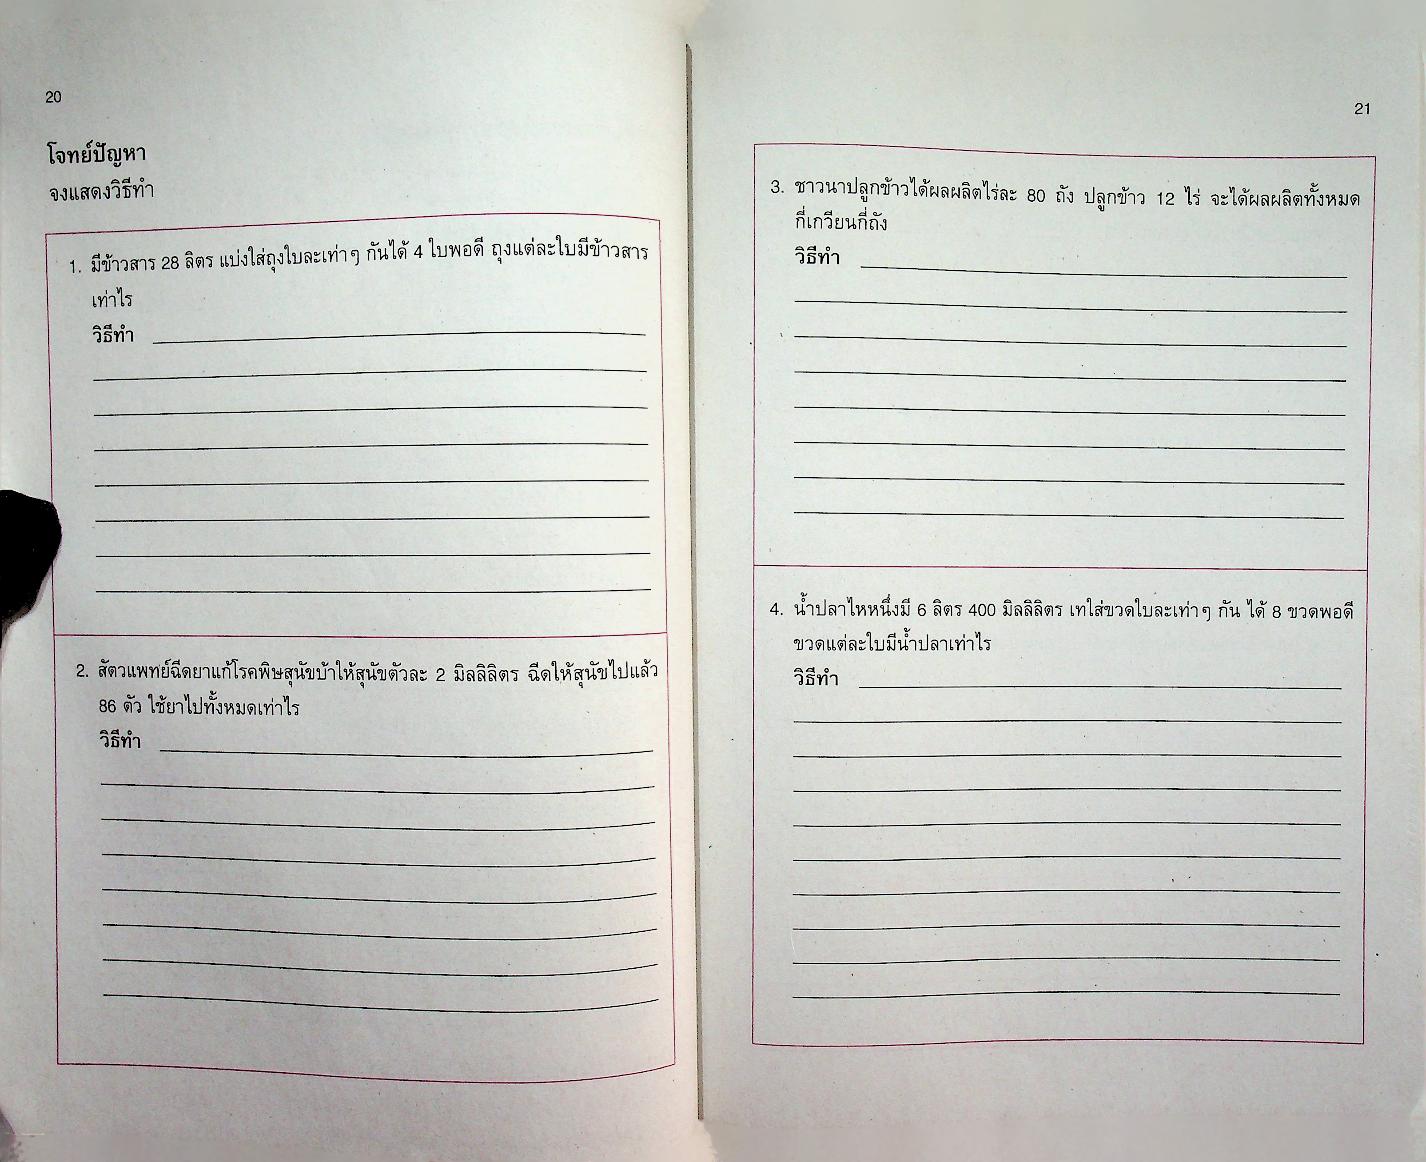 20
โจทย์ปัญหา
จงแสดงวิธีทำ
1. มีข้าวสาร 28 ลิตร แบ่งใส่ถุงใบละเท่าๆ กันได้ 4 ใบพอดี ถุงแต่ละใบมีข้าวสาร
เท่าไร
วิธีทำ
2. สัตวแพทย์ฉีดยาแก้โรคพิษสุนัขบ้าให้สุนัขตัวละ 2 มิลลิลิตร ฉีดให้สุนัขไปแล้ว
86 ตัว ใช้ยาไปทั้งหมดเท่าไร
วิธีทำ
21
3. ชาวนาปลูกข้าวได้ผลผลิตไร่ละ 80 ถัง ปลูกข้าว 12 ไร่ จะได้ผลผลิตทั้งหมด
กี่เกวียนกี่ถัง
วิธีทำ
4. น้ำปลาไหหนึ่งมี 6 ลิตร 400 มิลลิลิตร เทใส่ขวดใบละเท่าๆ กัน ได้ 8 ขวดพอดี
ขวดแต่ละใบมีน้ำปลาเท่าไร
วิธีทำ